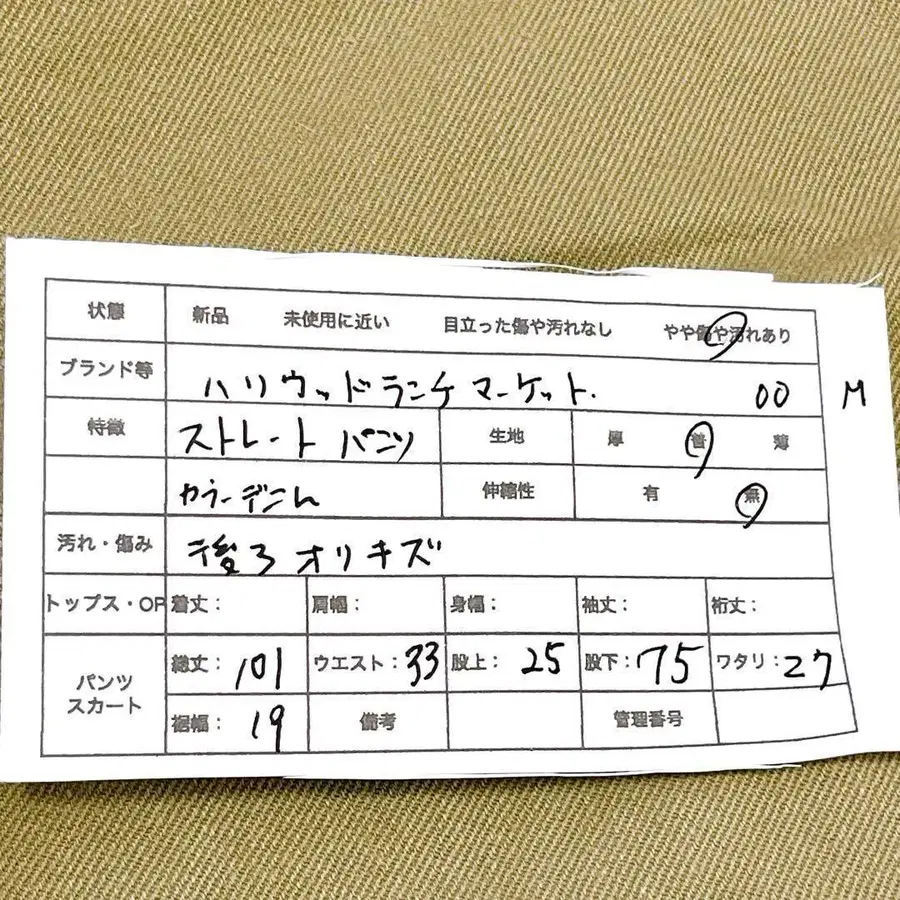 状態 新品 未使用に近い 目立った傷や汚れなし やや傷や汚れあり
ブランド等 ハリウッドランチマーケット. 00 M
特徴 ストレートパンツ 生地 厚 普 薄
カラーデニム 伸縮性 有 無
汚れ・傷み 後ろオリキズ
トップス・OP 着丈: 肩幅: 身幅: 袖丈: 裄丈:
パンツ スカート 総丈: 101 ウエスト: 33 股上: 25 股下: 75 ワタリ: 27
裾幅: 19 備考 管理番号